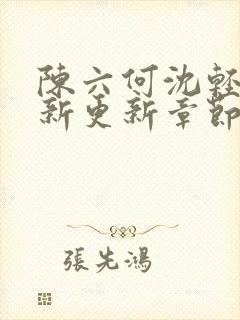 陳六何沈輕
新更新章節
張先鴻